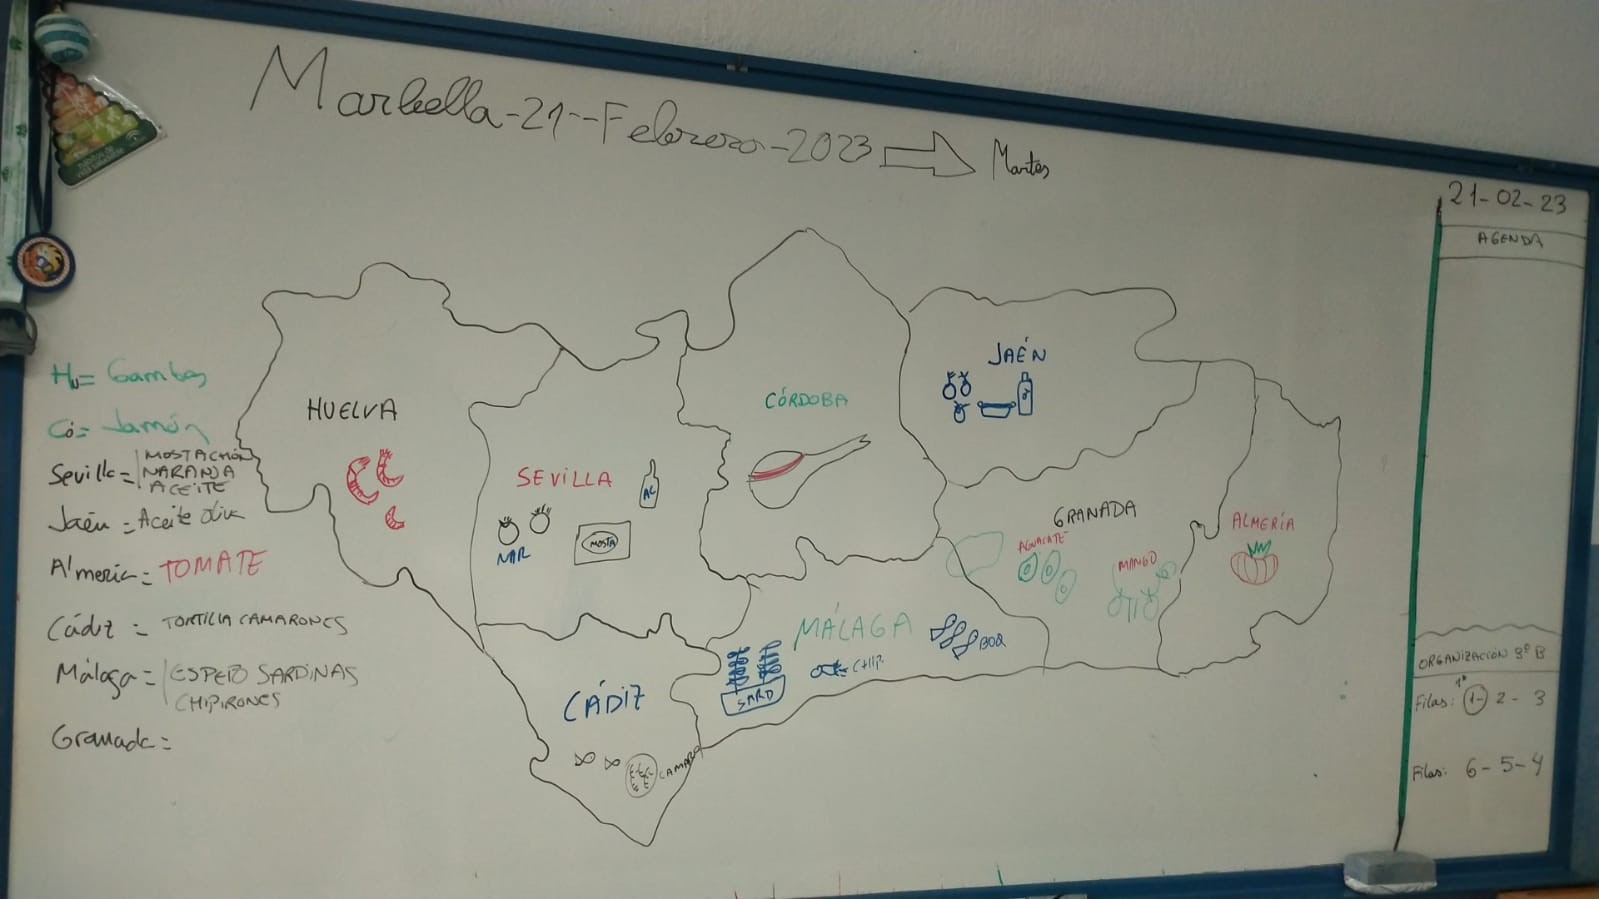 Marbella-21--Febrero-2023
Martes
21-02-23
AGENDA
Hu= Gambas
Có= Jamón
Sevilla= MOSTACHÓN
NARANJA
ACEITE
Jaén = Aceite oliva
Almería= TOMATE
Cádiz = TORTILLA CAMARONES
Málaga = ESPETO SARDINAS
CHIPIRONES
Granada=
HUELVA
SEVILLA
AC
NAR
MOSTA
CÓRDOBA
JAÉN
GRANADA
AGUACATE
MANGO
ALMERÍA
MÁLAGA
BOQ
CHIP.
SARD
CÁDIZ
CAMARO
ORGANIZACIÓN 3º B
Filas: 1- 2- 3
Filas: 6-5-4